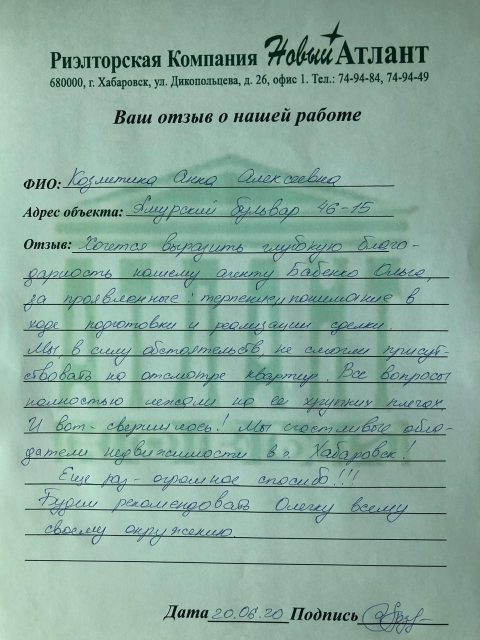 Риэлторская Компания Новый Атлант
680000, г. Хабаровск, ул. Дикопольцева, д. 26, офис 1. Тел.: 74-94-84, 74-94-49
Ваш отзыв о нашей работе
ФИО: Козлитина Анна Алексеевна
Адрес объекта: Амурский бульвар 46-15
Отзыв: Хочется выразить глубокую благо-
дарность нашему агенту Бабенко Ольге,
за проявленные: терпение, понимание в
ходе подготовки и реализации сделки.
Мы, в силу обстоятельств, не смогли присут-
ствовать на отсмотре квартир. Все вопросы
полностью лежали на её хрупких плечах.
И вот - свершилось! Мы счастливые обла-
датели недвижимости в г. Хабаровск!
Еще раз - огромное спасибо!!!
Будим рекомендовать Олечку всему
своему окружению.
Дата 20.06.20 Подпись